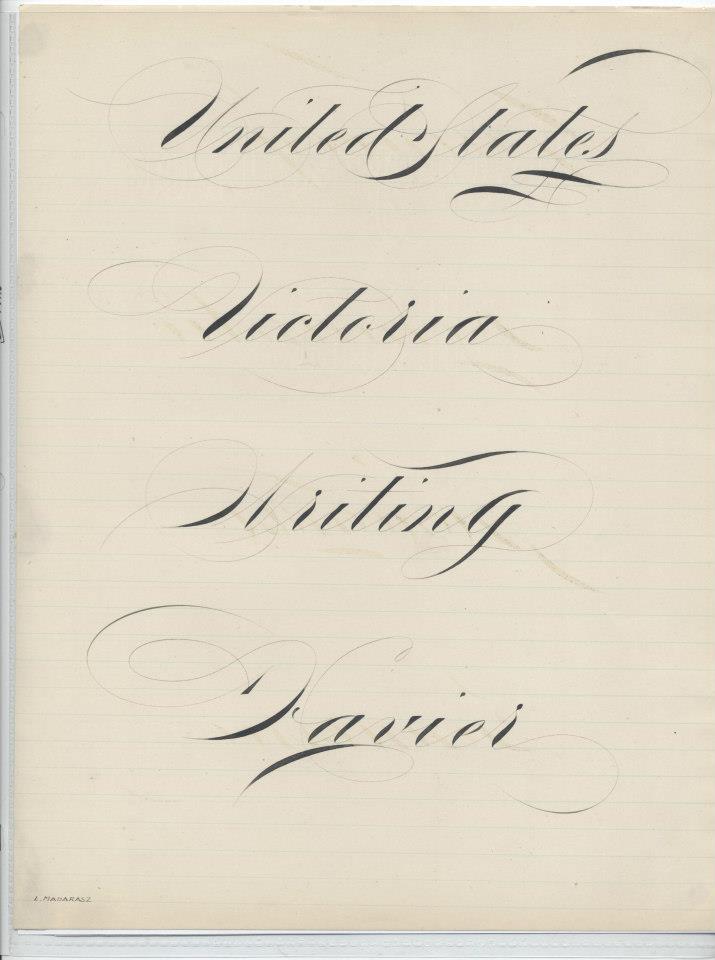 United States
Victoria
Writing
Xavier
L. MADARASZ